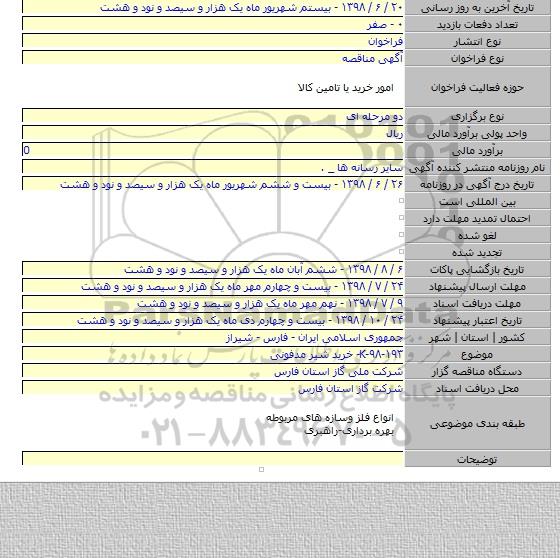 تاریخ آخرین به روز رسانی ۲۰ / ۶ / ۱۳۹۸ - بیستم شهریور ماه یک هزار و سیصد و نود و هشت
تعداد دفعات بازدید ۰ - صفر
نوع انتشار فراخوان
نوع فراخوان آگهی مناقصه
حوزه فعالیت فراخوان امور خرید با تامین کالا
نوع برگزاری دو مرحله ای
واحد پولی برآورد مالی ریال
برآورد مالی 0
نام روزنامه منتشر کننده آگهی سایر رسانه ها _ .
تاریخ درج آگهی در روزنامه ۲۶ / ۶ / ۱۳۹۸ - بیست و ششم شهریور ماه یک هزار و سیصد و نود و هشت
بین المللی است
احتمال تمدید مهلت دارد
لغو شده
تجدید شده
تاریخ بازگشایی پاکات ۶ / ۸ / ۱۳۹۸ - ششم آبان ماه یک هزار و سیصد و نود و هشت
مهلت ارسال پیشنهاد ۲۴ / ۷ / ۱۳۹۸ - بیست و چهارم مهر ماه یک هزار و سیصد و نود و هشت
مهلت دریافت اسناد ۹ / ۷ / ۱۳۹۸ - نهم مهر ماه یک هزار و سیصد و نود و هشت
تاریخ اعتبار پیشنهاد ۲۴ / ۱۰ / ۱۳۹۸ - بیست و چهارم دی ماه یک هزار و سیصد و نود و هشت
کشور | استان | شهر جمهوری اسلامی ایران - فارس - شیراز
موضوع K-۹۸-۱۹۳- خرید شیر مدفونی
دستگاه مناقصه گزار شرکت ملی گاز استان فارس
محل دریافت اسناد شرکت گاز استان فارس
طبقه بندی موضوعی انواع فلز وسازه های مربوطه
بهره برداری-راهبری
توضیحات
پایگاه اطلاع رسانی مناقصه و مزایده
۰۲۱-۸۸۳۴۹۶۷۰-۵